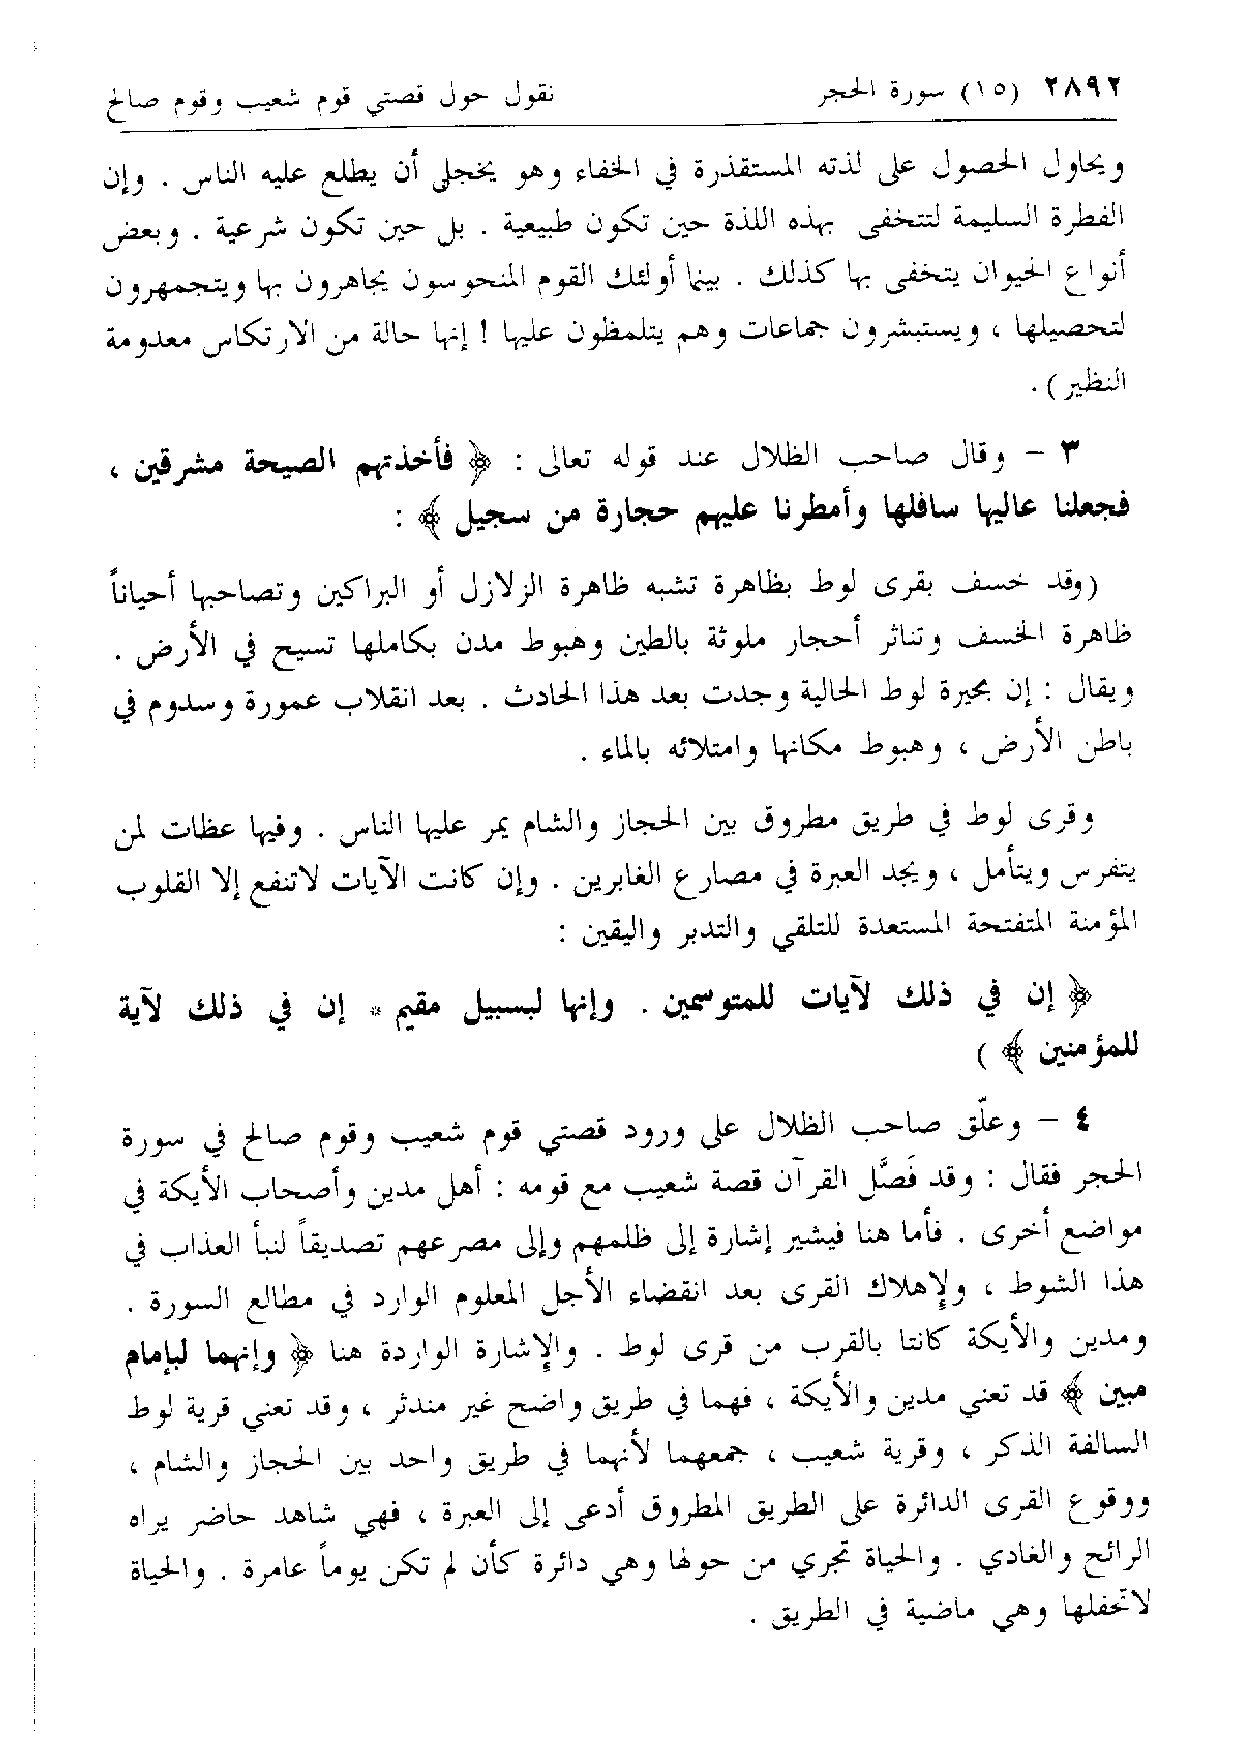 ٢٨٩٢ (١٥) سورة الحجر نقول حول قصتي قوم شعيب وقوم صالح
ويحاول الحصول على لذته المستقذرة في الخفاء وهو يخجل أن يطلع عليه الناس . وإن
الفطرة السليمة لتتخفى بهذه اللذة حين تكون طبيعية . بل حين تكون شرعية . وبعض
أنواع الحيوان يتخفى بها كذلك . بينما أولئك القوم المنحوسون يجاهرون بها ويتجمهرون
لتحصيلها ، ويستبشرون جماعات وهم يتلمظون عليها ! إنها حالة من الارتكاس معدومة
النظير ) .
٣ – وقال صاحب الظلال عند قوله تعالى : ﴿ فأخذتهم الصيحة مشرقين ،
فجعلنا عاليها سافلها وأمطرنا عليهم حجارة من سجيل ﴾ :
(وقد خسف بقرى لوط بظاهرة تشبه ظاهرة الزلازل أو البراكين وتصاحبها أحياناً
ظاهرة الخسف وتناثر أحجار ملوثة بالطين وهبوط مدن بكاملها تسيح في الأرض .
ويقال : إن بحيرة لوط الحالية وجدت بعد هذا الحادث . بعد انقلاب عمورة وسدوم في
باطن الأرض ، وهبوط مكانها وامتلائه بالماء .
وقرى لوط في طريق مطروق بين الحجاز والشام يمر عليها الناس . وفيها عظات لمن
يتفرس ويتأمل ، ويجد العبرة في مصارع الغابرين . وإن كانت الآيات لاتنفع إلا القلوب
المؤمنة المتفتحة المستعدة للتلقي والتدبر واليقين :
﴿ إن في ذلك لآيات للمتوسمين . وإنها لبسبيل مقيم * إن في ذلك لآية
للمؤمنين ﴾ )
٤ – وعلّق صاحب الظلال على ورود قصتي قوم شعيب وقوم صالح في سورة
الحجر فقال : وقد فَصَّل القرآن قصة شعيب مع قومه : أهل مدين وأصحاب الأيكة في
مواضع أخرى . فأما هنا فيشير إشارة إلى ظلمهم وإلى مصرعهم تصديقاً لنبأ العذاب في
هذا الشوط ، ولإهلاك القرى بعد انقضاء الأجل المعلوم الوارد في مطالع السورة .
ومدين والأيكة كانتا بالقرب من قرى لوط . والإشارة الواردة هنا ﴿ وإنهما لبإمام
مبين ﴾ قد تعني مدين والأيكة ، فهما في طريق واضح غير مندثر ، وقد تعني قرية لوط
السالفة الذكر ، وقرية شعيب ، جمعهما لأنهما في طريق واحد بين الحجاز والشام ،
ووقوع القرى الدائرة على الطريق المطروق أدعى إلى العبرة ، فهي شاهد حاضر يراه
الرائح والغادي . والحياة تجري من حولها وهي دائرة كأن لم تكن يوماً عامرة . والحياة
لاتحفلها وهي ماضية في الطريق .